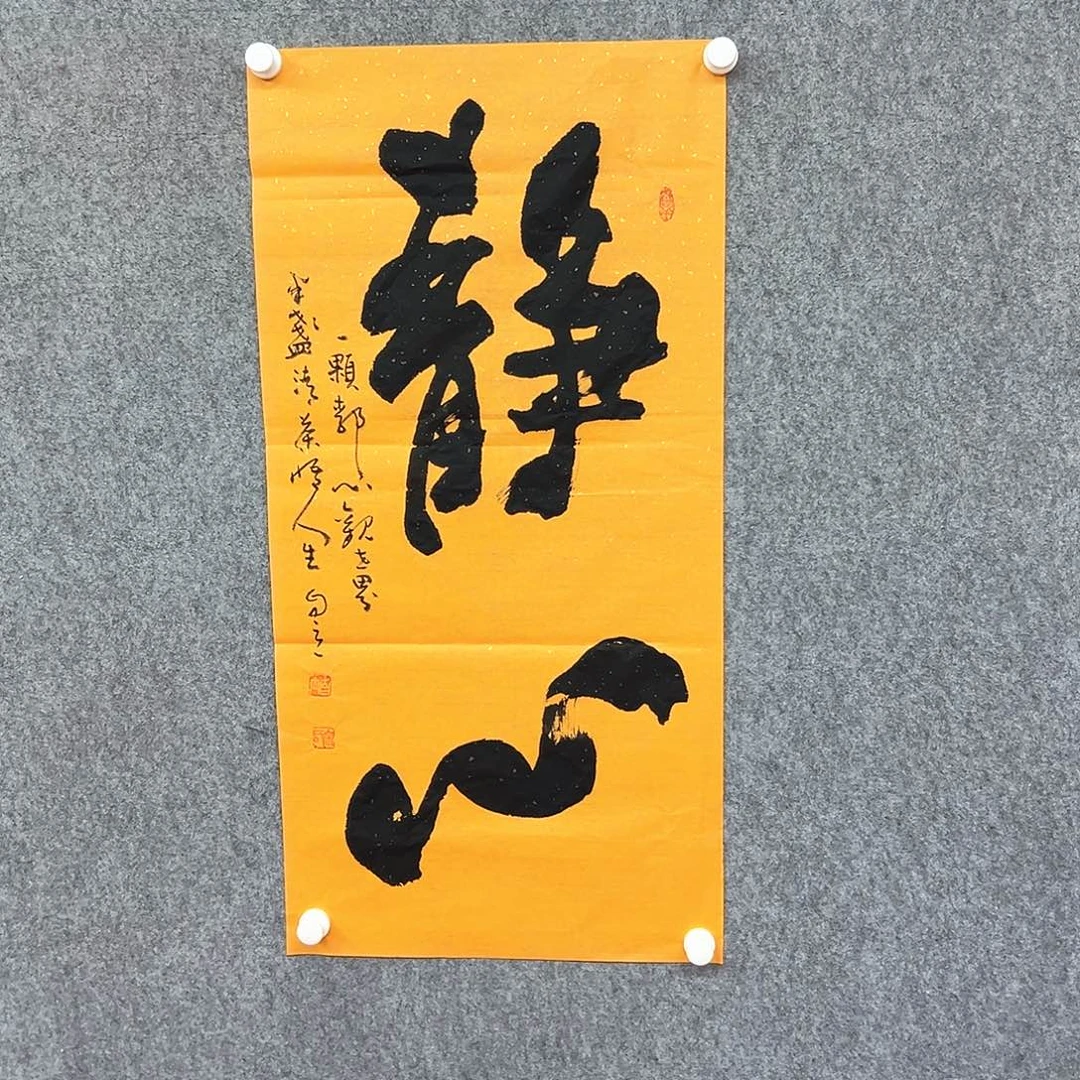 靜心
一顆靜心觀世界
半盞清茶悟人生